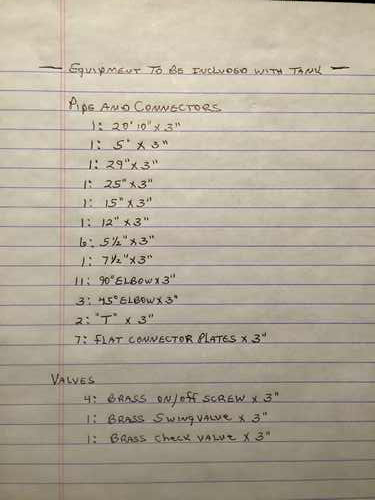 — EQUIPMENT TO BE INCLUDED WITH TANK —
PIPE AND CONNECTORS
1: 20' 10" X 3"
1: 5" X 3"
1: 29" X 3"
1: 25" X 3"
1: 15" X 3"
1: 12" X 3"
6: 5 1/2" X 3"
1: 7 1/2" X 3"
11: 90° ELBOW X 3"
3: 45° ELBOW X 3"
2: "T" X 3"
7: FLAT CONNECTOR PLATES X 3"
VALVES
4: BRASS ON/OFF SCREW X 3"
1: BRASS SWING VALVE X 3"
1: BRASS CHECK VALVE X 3"